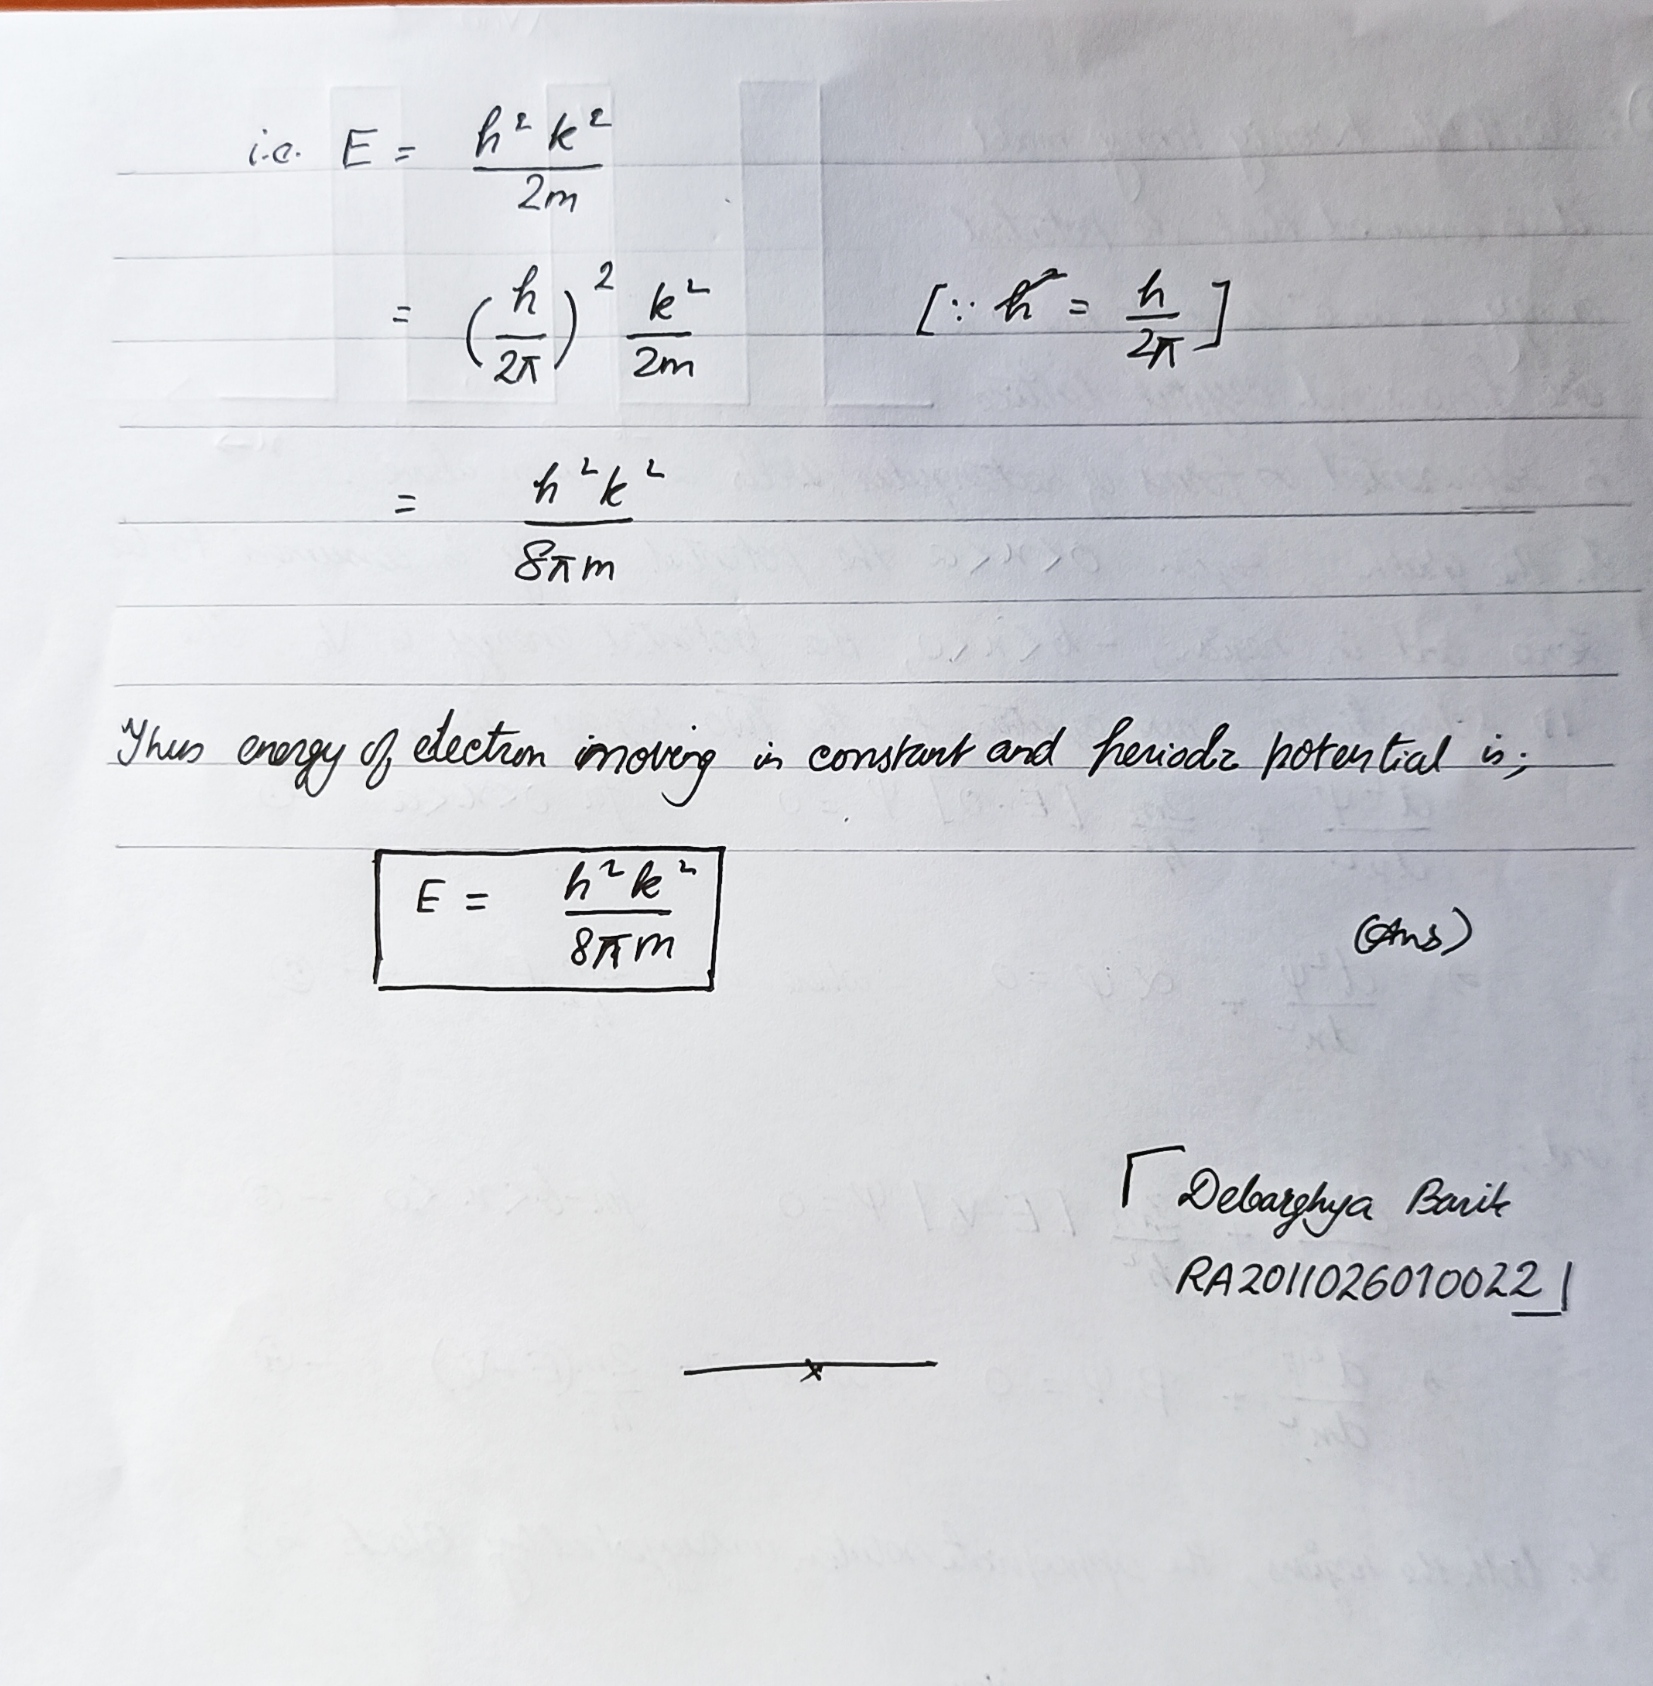 i.e. E = ħ²k² / 2m
= (h/2π)² k²/2m [∵ ħ² = h/2π]
= h²k² / 8πm
Thus energy of electron moving in constant and periodic potential is;
E = h²k² / 8πm
(Ans)
Debarghya Barik
RA2011026010022